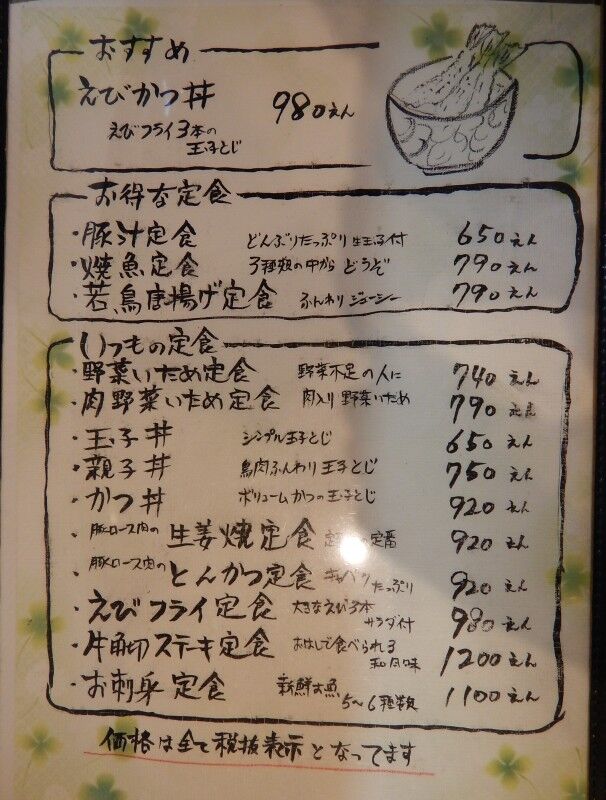 おすすめ
えびかつ丼 980えん
えびフライ3本の
玉子とじ
お得な定食
・豚汁定食 どんぶりたっぷり 生玉子付 650えん
・焼魚定食 3種類の中から どうぞ 790えん
・若鳥唐揚げ定食 ふんわり ジューシー 790えん
いつもの定食
・野菜いため定食 野菜不足の人に 740えん
・肉野菜いため定食 肉入り 野菜いため 790えん
・玉子丼 シンプル玉子とじ 650えん
・親子丼 鳥肉ふんわり 玉子とじ 750えん
・かつ丼 ボリュームかつの玉子とじ 920えん
・豚ロース肉の 生姜焼定食 の定番 920えん
・豚ロース肉の とんかつ定食 キャベツ たっぷり 920えん
・えびフライ定食 大きなえび3本 サラダ付 980えん
・牛角切ステーキ定食 おはしで食べられる 和風味 1200えん
・お刺身定食 新鮮お魚 5〜6種類 1100えん
価格は全て税抜表示となってます